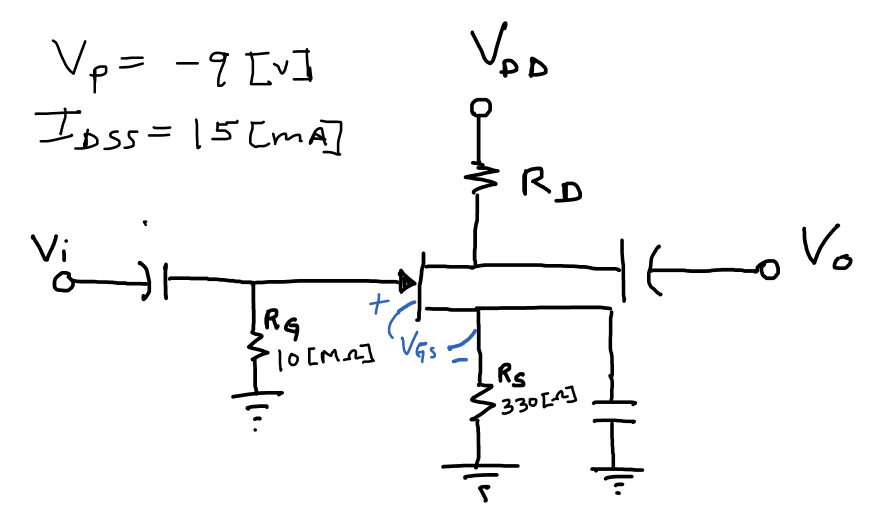 Vp = -9 [V]
IDSS = 15 [mA]
VDD
RD
Vi
Vo
+
RG
10 [MΩ]
VGS
-
RS
330 [Ω]